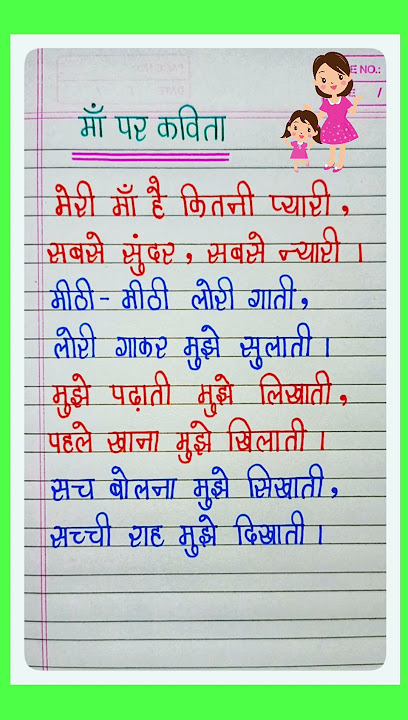 E NO.:
/
माँ पर कविता
मेरी माँ है कितनी प्यारी,
सबसे सुंदर, सबसे न्यारी ।
मीठी - मीठी लोरी गाती,
लोरी गाकर मुझे सुलाती ।
मुझे पढ़ाती मुझे लिखाती,
पहले खाना मुझे खिलाती ।
सच बोलना मुझे सिखाती,
सच्ची राह मुझे दिखाती ।